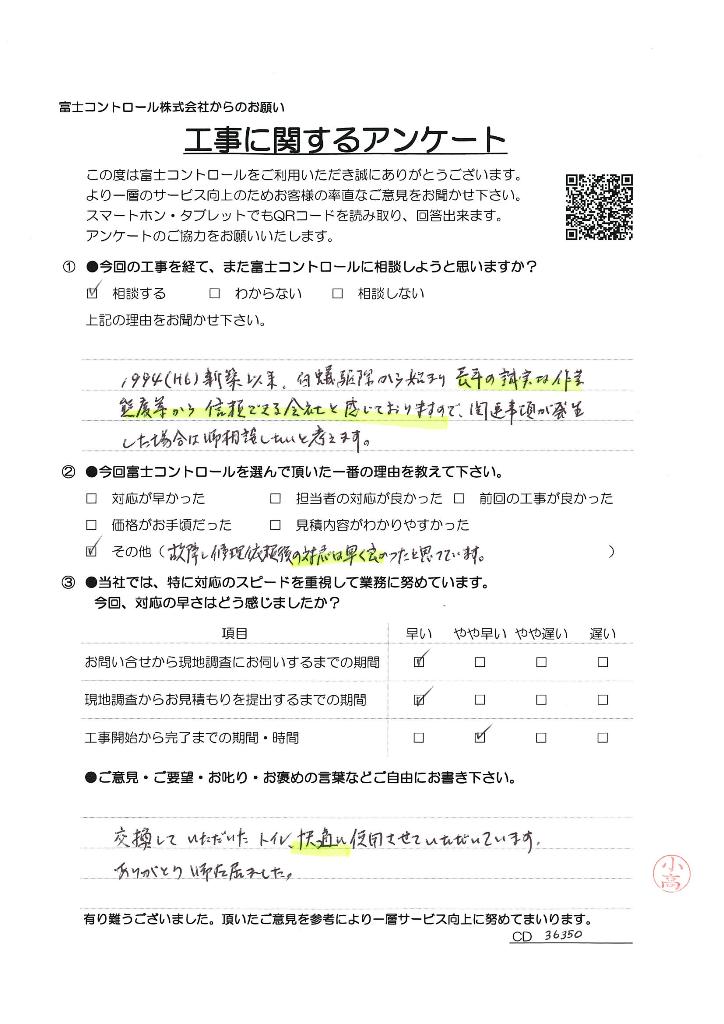 富士コントロール株式会社からのお願い
工事に関するアンケート
この度は富士コントロールをご利用いただき誠にありがとうございます。
より一層のサービス向上のためお客様の率直なご意見をお聞かせ下さい。
スマートホン・タブレットでもQRコードを読み取り、回答出来ます。
アンケートのご協力をお願いいたします。
① ●今回の工事を経て、また富士コントロールに相談しようと思いますか？
☑ 相談する □ わからない □ 相談しない
上記の理由をお聞かせ下さい。
1994(H6)新築以来、白蟻駆除から始まり長年の誠実な作業
態度等から信頼できる会社と感じておりますので、関連事項が発生
した場合は御相談したいと考えます。
② ●今回富士コントロールを選んで頂いた一番の理由を教えて下さい。
□ 対応が早かった □ 担当者の対応が良かった □ 前回の工事が良かった
□ 価格がお手頃だった □ 見積内容がわかりやすかった
☑ その他（故障し修理依頼後の対応は早く良かったと思っています。）
③ ●当社では、特に対応のスピードを重視して業務に努めています。
今回、対応の早さはどう感じましたか？
項目 早い やや早い やや遅い 遅い
お問い合せから現地調査にお伺いするまでの期間 ☑ □ □ □
現地調査からお見積もりを提出するまでの期間 ☑ □ □ □
工事開始から完了までの期間・時間 □ ☑ □ □
●ご意見・ご要望・お叱り・お褒めの言葉などご自由にお書き下さい。
交換していただいたトイレ、快適に使用させていただいています。
ありがとう御座居ました。
小高
有り難うございました。頂いたご意見を参考により一層サービス向上に努めてまいります。
CD 36350